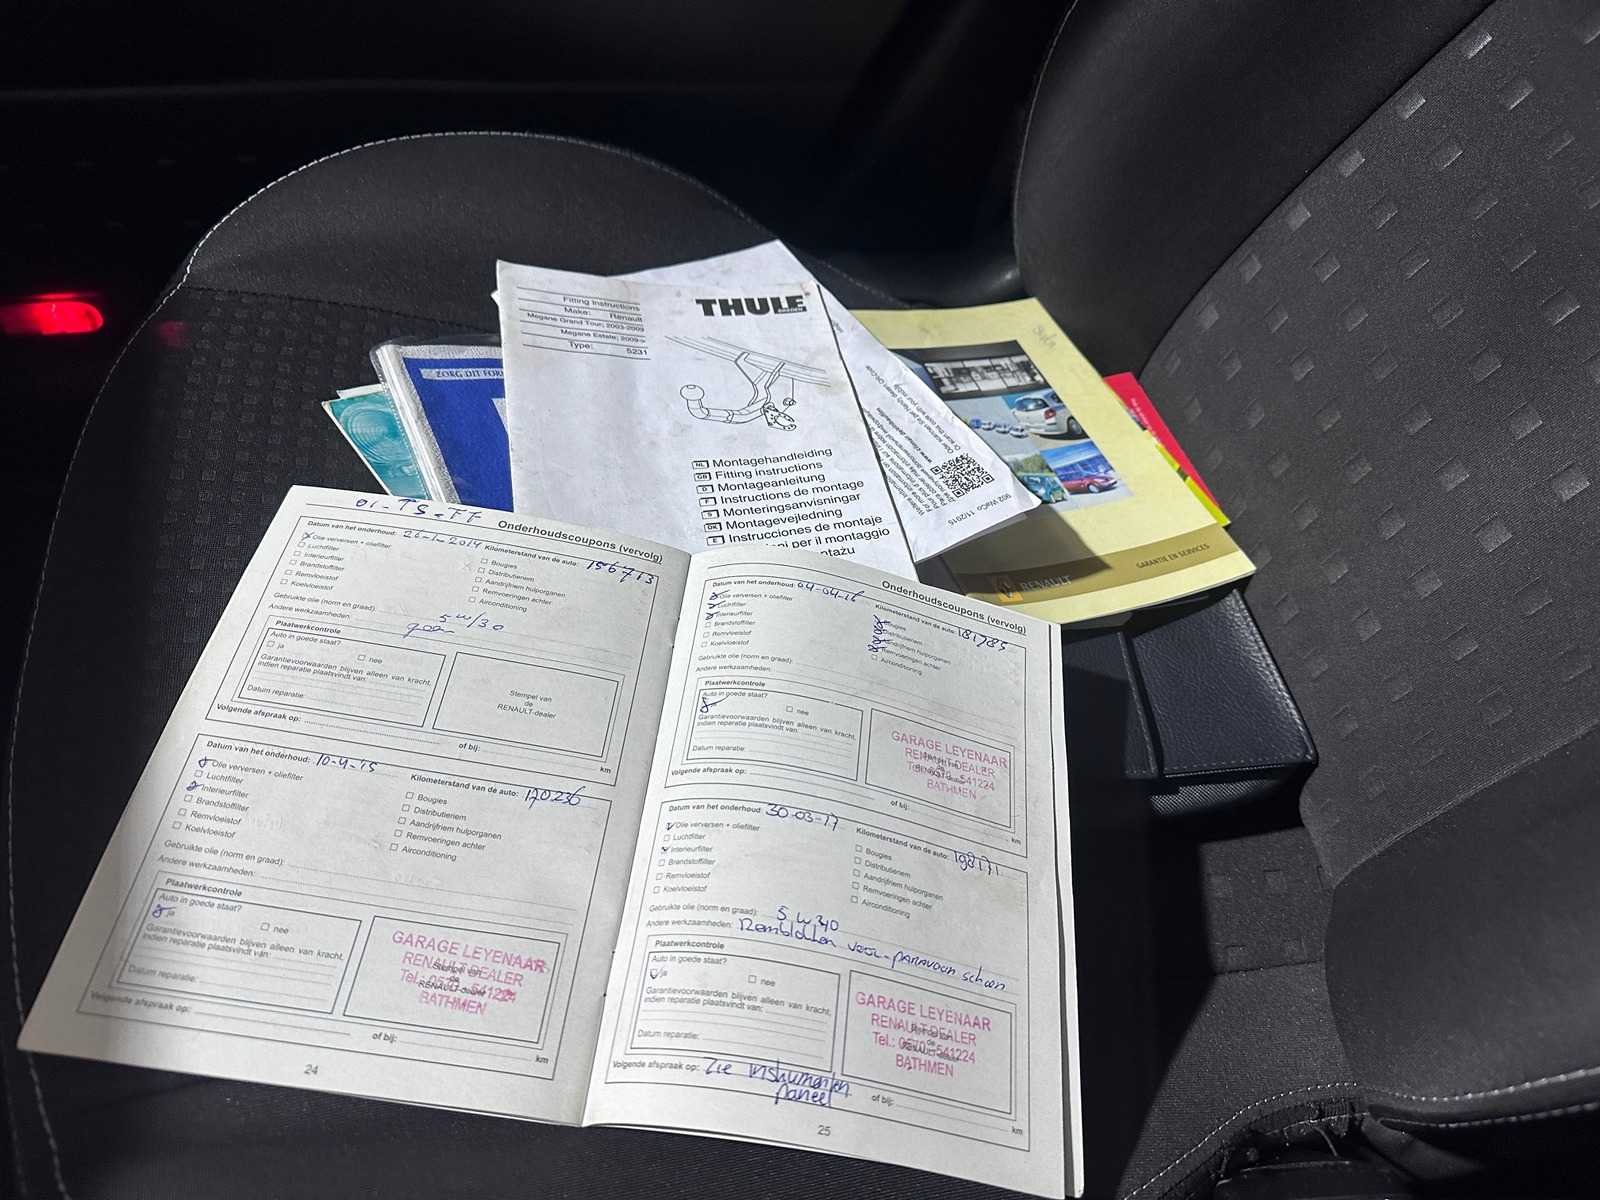 THULE
SWEDEN
Fitting Instructions
Make: Renault
Megane Grand Tour; 2003-2009
Megane Estate; 2009->
Type: 5231
ZORG DIT FOR
NL Montagehandleiding
GB Fitting Instructions
D Montageanleitung
F Instructions de montage
S Monteringsanvisningar
DK Montagevejledning
E Instrucciones de montaje
ni per il montaggio
ontażu
902 WaCo 11/2015
RENAULT
GARANTIE EN SERVICES
Onderhoudscoupons (vervolg)
Datum van het onderhoud: 26-1-2014
Kilometerstand van de auto: 156713
Olie verversen + oliefilter
Luchtfilter
Interieurfilter
Brandstoffilter
Remvloeistof
Koelvloeistof
Bougies
Distributieriem
Aandrijfriem hulporganen
Remvoeringen achter
Airconditioning
Gebruikte olie (norm en graad):
5w/30
Andere werkzaamheden:
Plaatwerkcontrole
Auto in goede staat?
ja
nee
Garantievoorwaarden blijven alleen van kracht,
indien reparatie plaatsvindt van:
Datum reparatie:
Stempel van
de
RENAULT-dealer
Volgende afspraak op:
of bij:
km
Datum van het onderhoud: 10-4-15
Kilometerstand van de auto: 170236
Olie verversen + oliefilter
Luchtfilter
Interieurfilter
Brandstoffilter
Remvloeistof
Koelvloeistof
Bougies
Distributieriem
Aandrijfriem hulporganen
Remvoeringen achter
Airconditioning
Gebruikte olie (norm en graad):
Andere werkzaamheden:
Plaatwerkcontrole
Auto in goede staat?
ja
nee
Garantievoorwaarden blijven alleen van kracht,
indien reparatie plaatsvindt van:
Datum reparatie:
GARAGE LEYENAAR
RENAULT-DEALER
Tel.: 0570-541224
BATHMEN
Volgende afspraak op:
of bij:
km
24
Onderhoudscoupons (vervolg)
Datum van het onderhoud: 04-04-16
Kilometerstand van de auto: 181785
Olie verversen + oliefilter
Luchtfilter
Interieurfilter
Brandstoffilter
Remvloeistof
Koelvloeistof
Bougies
Distributieriem
Aandrijfriem hulporganen
Remvoeringen achter
Airconditioning
Gebruikte olie (norm en graad):
Andere werkzaamheden:
Plaatwerkcontrole
Auto in goede staat?
nee
Garantievoorwaarden blijven alleen van kracht,
indien reparatie plaatsvindt van:
Datum reparatie:
GARAGE LEYENAAR
RENAULT-DEALER
Tel.: 0570-541224
BATHMEN
Volgende afspraak op:
of bij:
km
Datum van het onderhoud: 30-03-17
Kilometerstand van de auto: 198171
Olie verversen + oliefilter
Luchtfilter
Interieurfilter
Brandstoffilter
Remvloeistof
Koelvloeistof
Bougies
Distributieriem
Aandrijfriem hulporganen
Remvoeringen achter
Airconditioning
Gebruikte olie (norm en graad): 5 w 30
Andere werkzaamheden: Remblokken voor-paravoon schoon
Plaatwerkcontrole
Auto in goede staat?
ja
nee
Garantievoorwaarden blijven alleen van kracht,
indien reparatie plaatsvindt van:
Datum reparatie:
GARAGE LEYENAAR
RENAULT-DEALER
Tel.: 0570-541224
BATHMEN
Volgende afspraak op: Zie instrumenten
paneel
of bij:
km
25